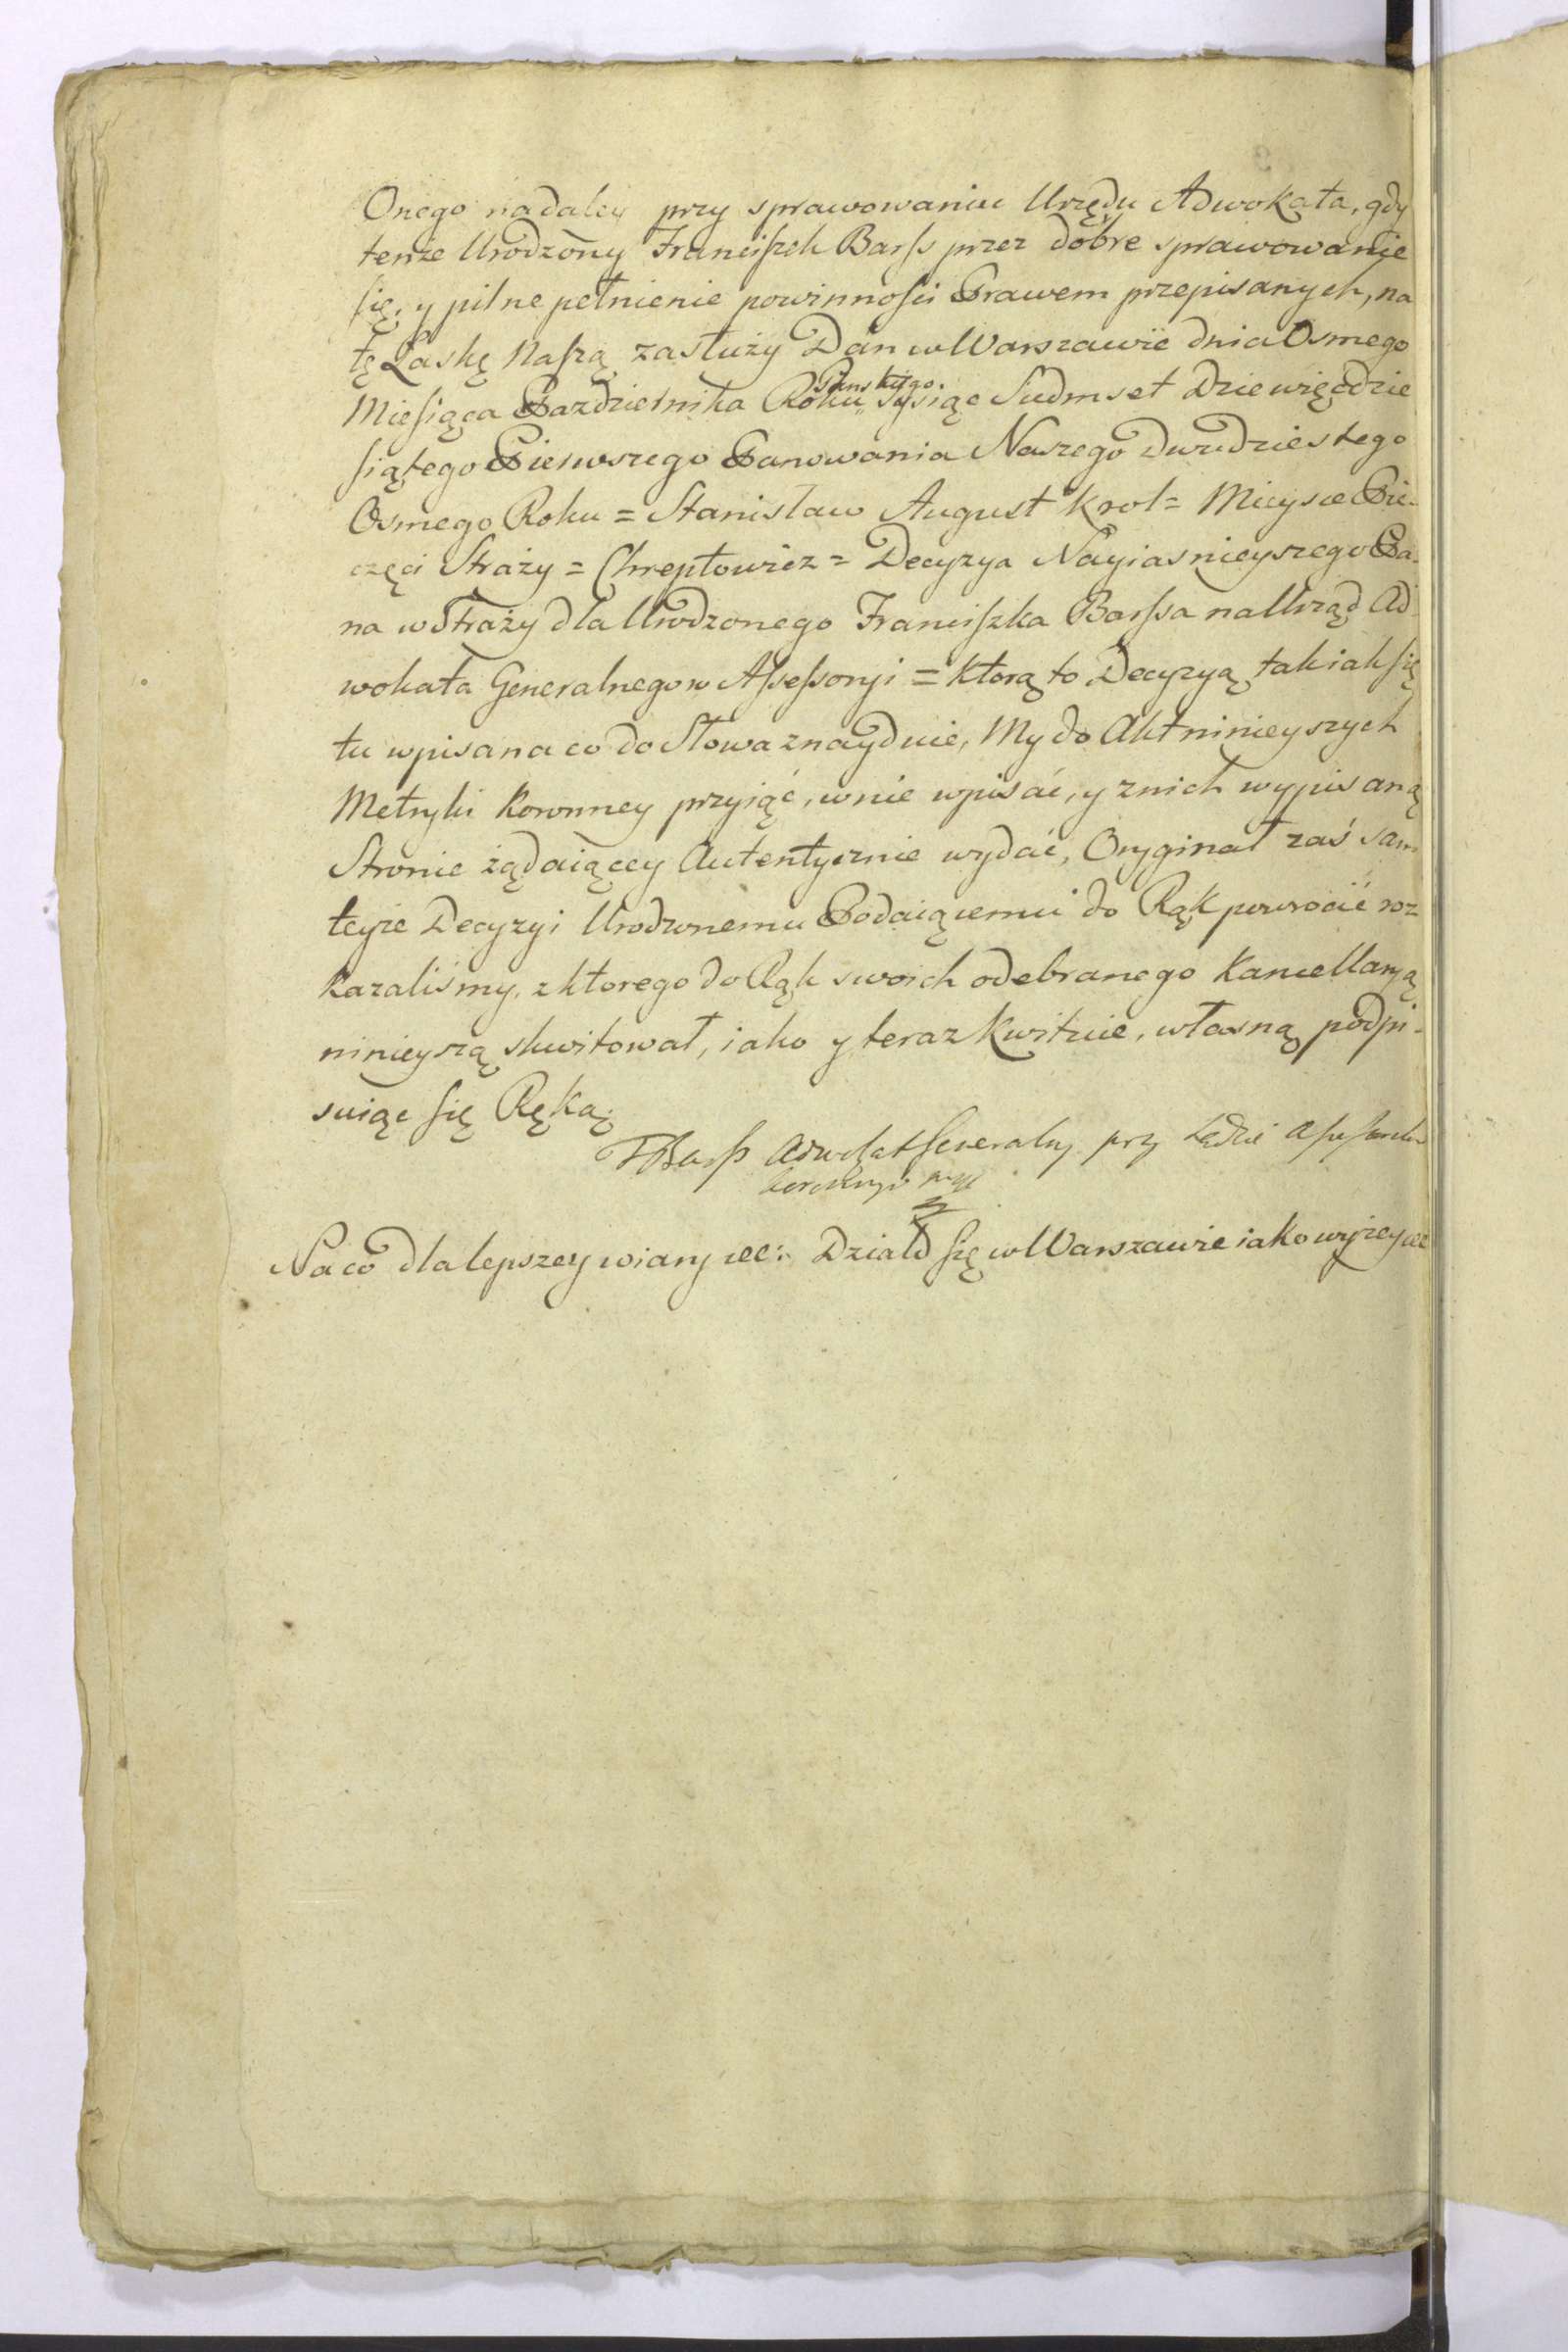 Onego nadaley przy sprawowaniu Urzędu Adwokata, gdy
tenże Urodzony Franciszek Barss przez dobre sprawowanie
się, y pilne pełnienie powinności Prawem przepisanych, na
tę Łaskę Naszą zasłuży Dan w Warszawie dnia Osmego
Miesiąca Pazdziernika Roku Panskiego Tysiąc Siedmset Dziewięćdzie
siątego Pierwszego Panowania Naszego Dwudziestego
Osmego Roku = Stanisław August Krol = Mieysce Pie-
częci Straży = Chreptowicz = Decyzya Nayiasnieyszego Pa-
na w Straży dla Urodzonego Franciszka Barssa na Urząd Ad
wokata Generalnego w Assessoryi = Ktorą to Decyzyą tak iak się
tu wpisana co do Słowa znayduie, My do Akt ninieyszych
Metryki Koronney przyiąć, w nie wpisać, y z nich wypisaną
Stronie żądaiącey Autentycznie wydać, Oryginał zaś sam
teyże Decyzyi Urodzonemu Podaiącemu do Rąk powrocić roz
kazaliśmy, z ktorego do Rąk swoich odebranego Kancellaryą
ninieyszą skwitował, iako y teraz kwituie, własną podpi-
suiąc się Ręką.
FBarss Adwokat Generalny przy Sądzie
Na co dla lepszey wiary etc: Działo się w Warszawie iako wyżey